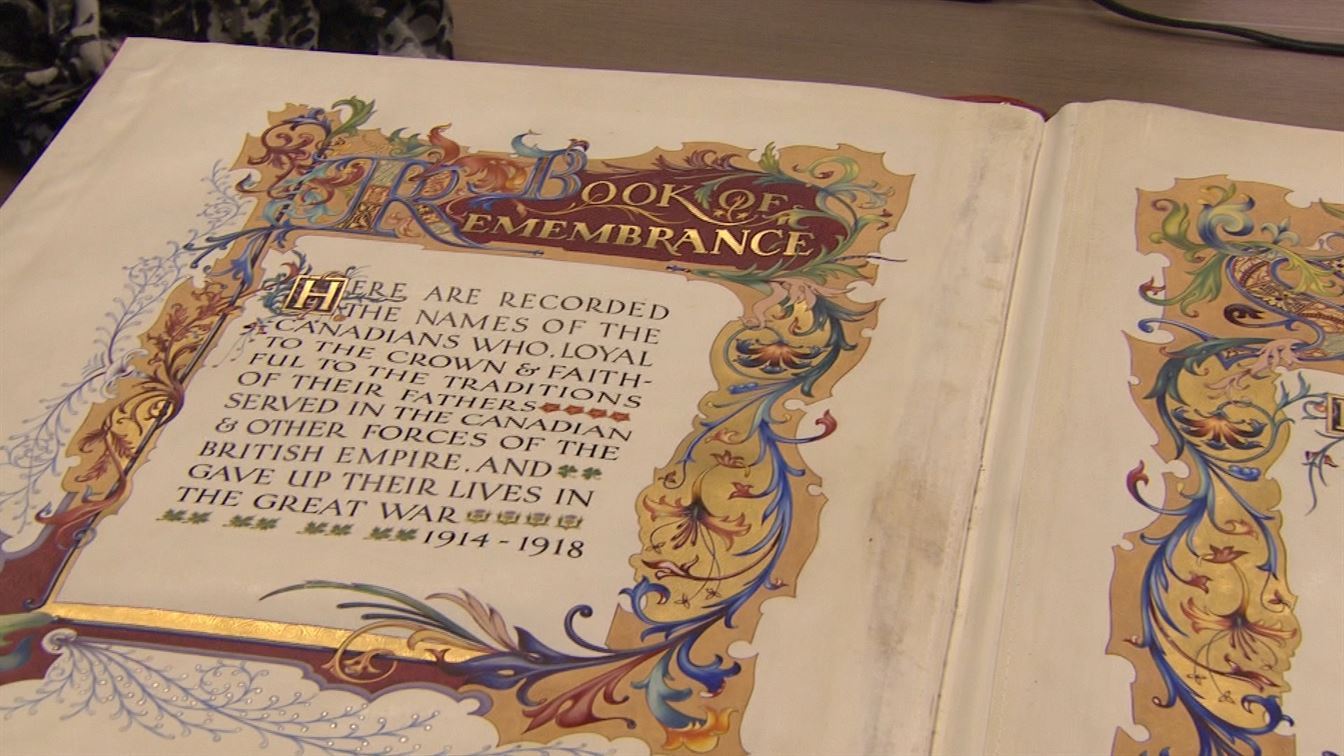 BOOK OF
REMEMBRANCE
HERE ARE RECORDED
THE NAMES OF THE
CANADIANS WHO, LOYAL
TO THE CROWN & FAITH-
FUL TO THE TRADITIONS
OF THEIR FATHERS
SERVED IN THE CANADIAN
& OTHER FORCES OF THE
BRITISH EMPIRE, AND
GAVE UP THEIR LIVES IN
THE GREAT WAR
1914 - 1918